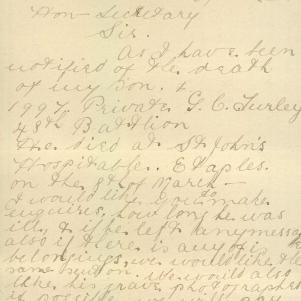 Hon Secretary
Sir.
As I have been
notified of the death
of my Son.
1997 Private G. C. Turley
48th Battlion
He died at St John's
Hospitable. Etaples.
on the 8th of March—
I would like you to make
enquires, how long he was
ill, & if he left any messag
also if there is any of is
belongings, we would like the
same sent on. We would also
like his grave photographed
if possible